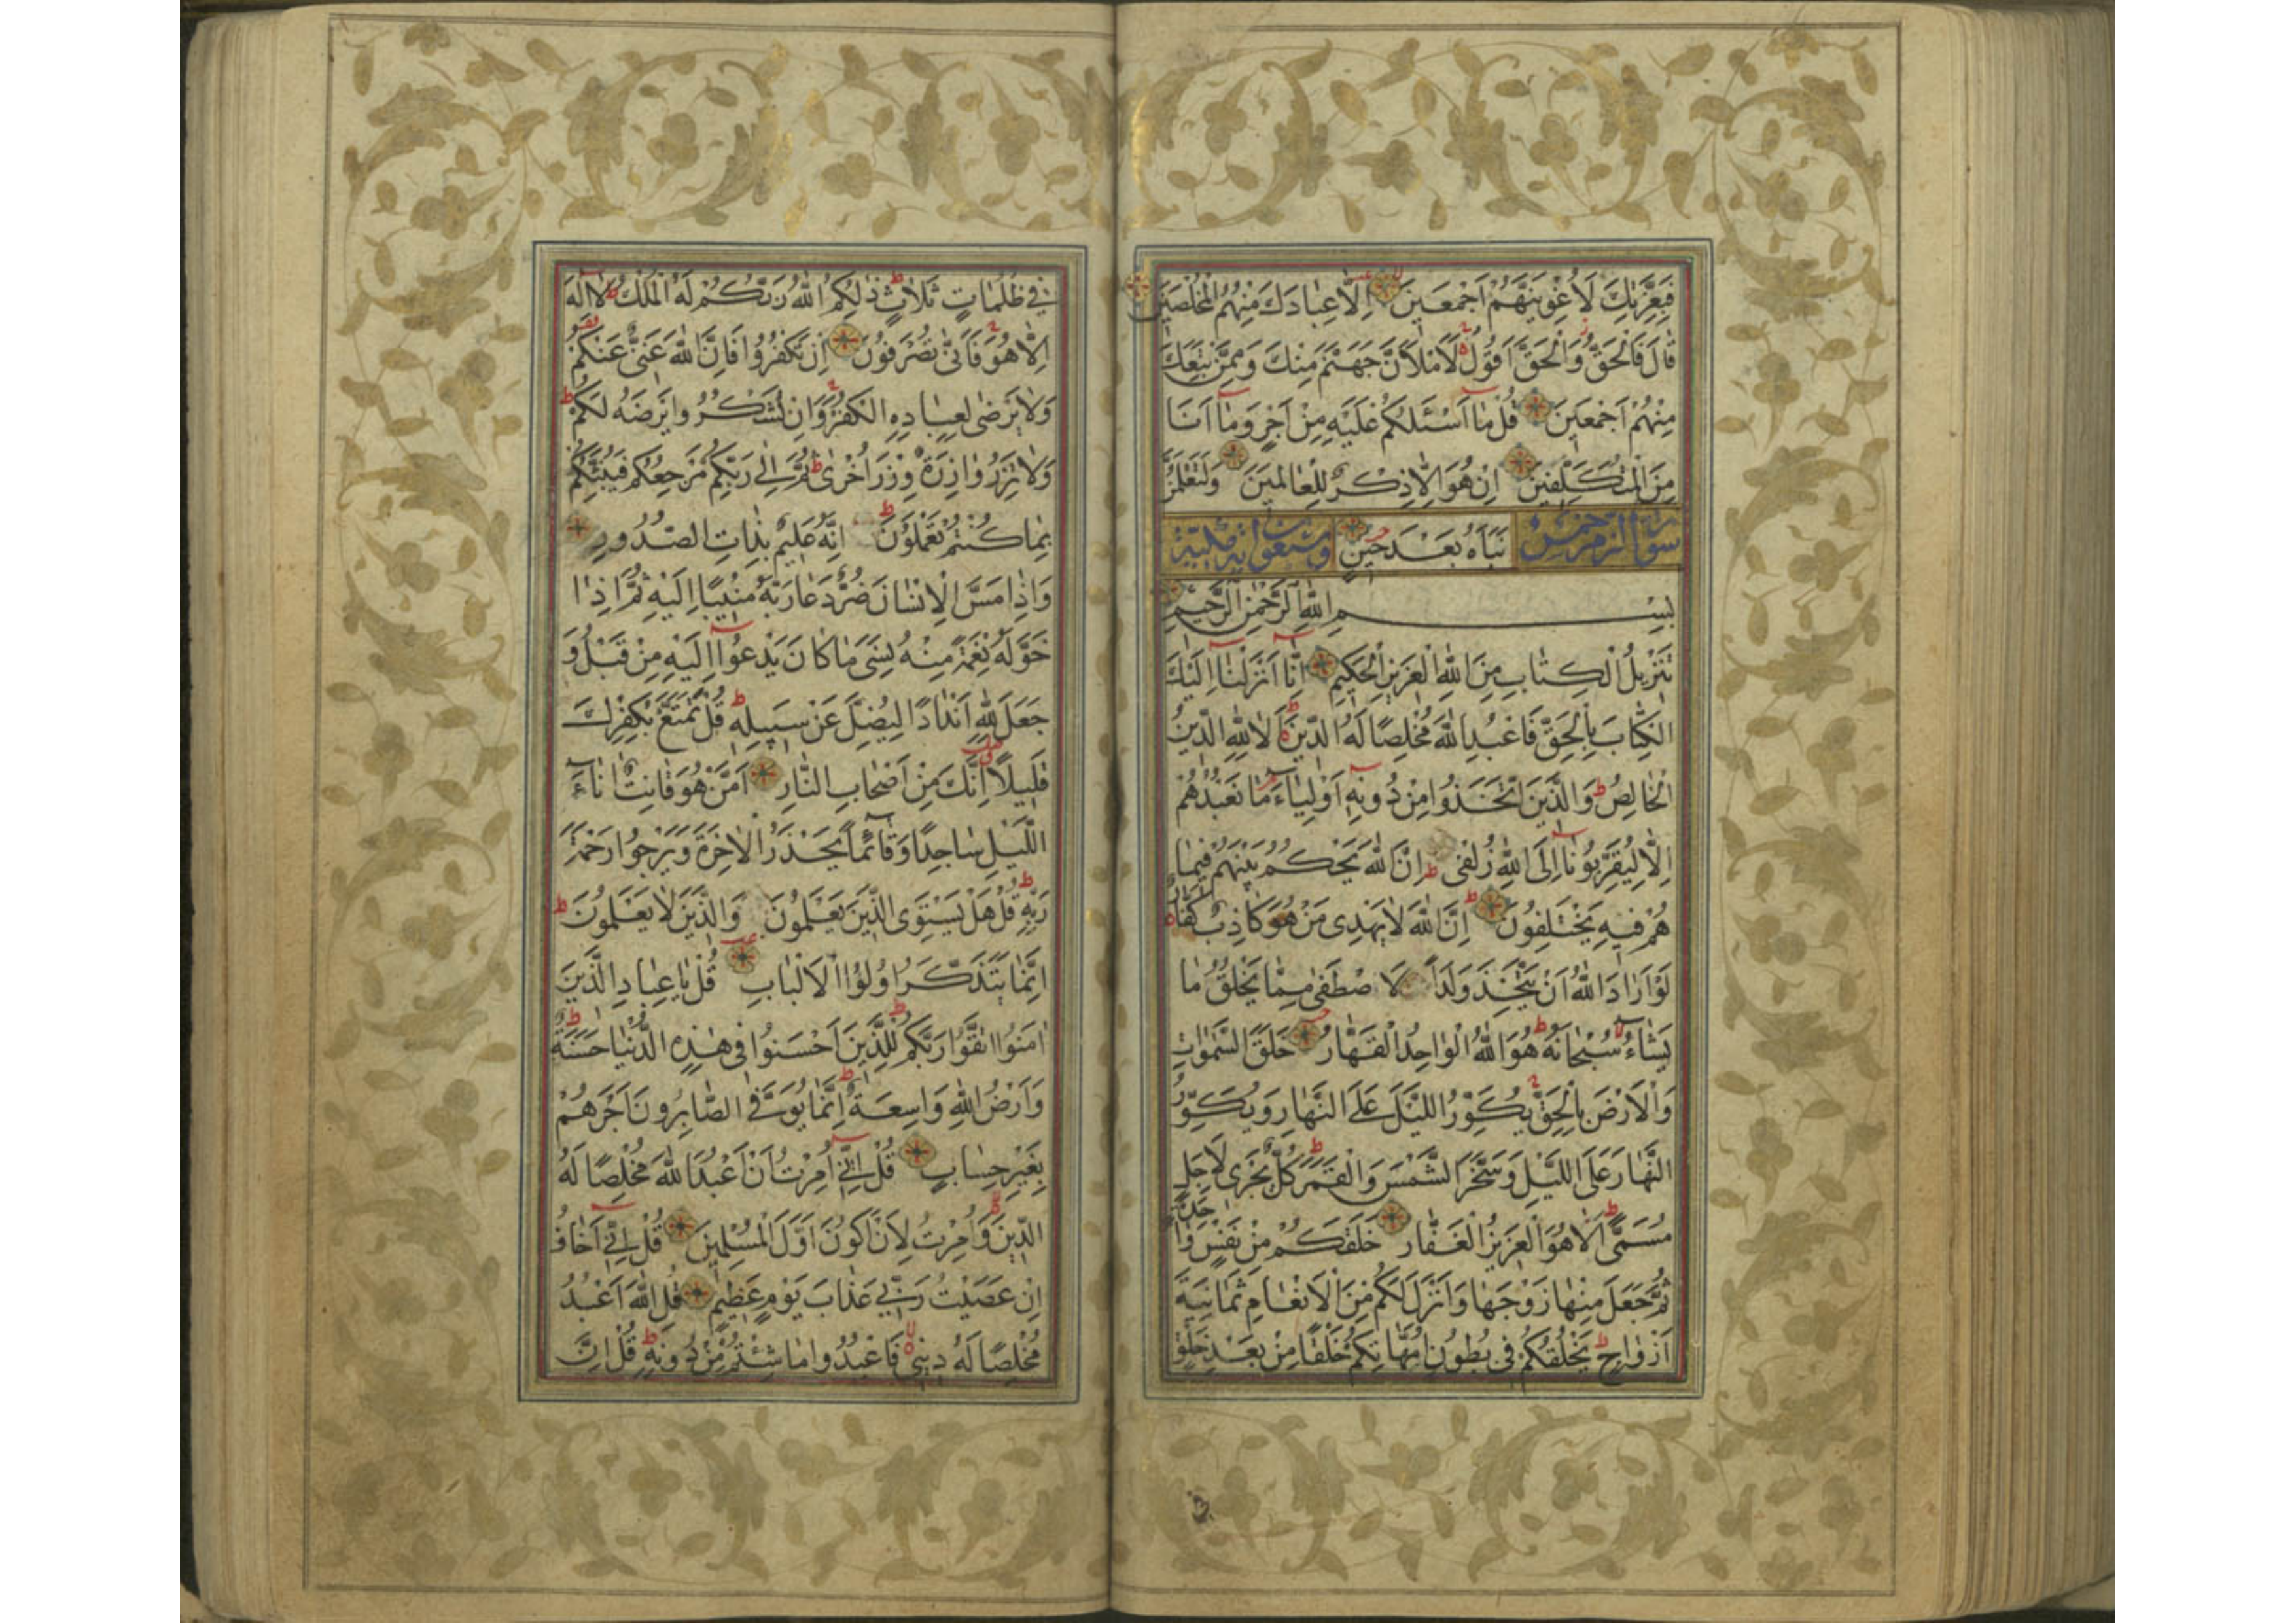 فَبِعِزَّتِكَ لَاُغْوِيَنَّهُمْ اَجْمَعينَ اِلَّا عِبادَكَ مِنْهُمُ الْمُخْلَصينَ
قالَ فَالْحَقُّ وَالْحَقَّ اَقُولُ لَاَمْلَاَنَّ جَهَنَّمَ مِنْكَ وَمِمَّنْ تَبِعَكَ
مِنْهُمْ اَجْمَعينَ قُلْ ما اَسْئَلُكُمْ عَلَيْهِ مِنْ اَجْرٍ وَما اَنَا
مِنَ الْمُتَكَلِّفينَ اِنْ هُوَ اِلَّا ذِكْرٌ لِلْعالَمينَ وَلَتَعْلَمُنَّ
سورة الزمر خمس نَبَاَهُ بَعْدَ حينٍ وسبعون اية مكية
بِسْمِ اللّٰهِ الرَّحْمٰنِ الرَّحيمِ
تَنْزيلُ الْكِتابِ مِنَ اللّٰهِ الْعَزيزِ الْحَكيمِ اِنَّا اَنْزَلْنا اِلَيْكَ
الْكِتابَ بِالْحَقِّ فَاعْبُدِ اللّٰهَ مُخْلِصًا لَهُ الدّينَ اَلَا لِلّٰهِ الدّينُ
الْخالِصُ وَالَّذينَ اتَّخَذُوا مِنْ دُونِهٖ اَوْلِياءَ ما نَعْبُدُهُمْ
اِلَّا لِيُقَرِّبُونا اِلَى اللّٰهِ زُلْفٰى اِنَّ اللّٰهَ يَحْكُمُ بَيْنَهُمْ فيما
هُمْ فيهِ يَخْتَلِفُونَ اِنَّ اللّٰهَ لا يَهْدى مَنْ هُوَ كاذِبٌ كَفَّارٌ
لَوْ اَرادَ اللّٰهُ اَنْ يَتَّخِذَ وَلَدًا لَاصْطَفٰى مِمَّا يَخْلُقُ ما
يَشاءُ سُبْحانَهُ هُوَ اللّٰهُ الْواحِدُ الْقَهَّارُ خَلَقَ السَّمٰواتِ
وَالْاَرْضَ بِالْحَقِّ يُكَوِّرُ اللَّيْلَ عَلَى النَّهارِ وَيُكَوِّرُ
النَّهارَ عَلَى اللَّيْلِ وَسَخَّرَ الشَّمْسَ وَالْقَمَرَ كُلٌّ يَجْرى لِاَجَلٍ
مُسَمًّى اَلَا هُوَ الْعَزيزُ الْغَفَّارُ خَلَقَكُمْ مِنْ نَفْسٍ وَاحِدَةٍ
ثُمَّ جَعَلَ مِنْها زَوْجَها وَاَنْزَلَ لَكُمْ مِنَ الْاَنْعامِ ثَمانِيَةَ
اَزْواجٍ يَخْلُقُكُمْ فى بُطُونِ اُمَّهاتِكُمْ خَلْقًا مِنْ بَعْدِ خَلْقٍ
فى ظُلُماتٍ ثَلاثٍ ذٰلِكُمُ اللّٰهُ رَبُّكُمْ لَهُ الْمُلْكُ لا اِلٰهَ
اِلَّا هُوَ فَاَنّٰى تُصْرَفُونَ اِنْ تَكْفُرُوا فَاِنَّ اللّٰهَ غَنِىٌّ عَنْكُمْ
وَلا يَرْضٰى لِعِبادِهِ الْكُفْرَ وَاِنْ تَشْكُرُوا يَرْضَهُ لَكُمْ
وَلا تَزِرُ وازِرَةٌ وِزْرَ اُخْرٰى ثُمَّ اِلٰى رَبِّكُمْ مَرْجِعُكُمْ فَيُنَبِّئُكُمْ
بِما كُنْتُمْ تَعْمَلُونَ اِنَّهُ عَليمٌ بِذاتِ الصُّدُورِ
وَاِذا مَسَّ الْاِنْسانَ ضُرٌّ دَعا رَبَّهُ مُنيبًا اِلَيْهِ ثُمَّ اِذا
خَوَّلَهُ نِعْمَةً مِنْهُ نَسِىَ ما كانَ يَدْعُوا اِلَيْهِ مِنْ قَبْلُ وَ
جَعَلَ لِلّٰهِ اَنْدادًا لِيُضِلَّ عَنْ سَبيلِهٖ قُلْ تَمَتَّعْ بِكُفْرِكَ
قَليلًا اِنَّكَ مِنْ اَصْحابِ النَّارِ اَمَّنْ هُوَ قانِتٌ اٰناءَ
اللَّيْلِ ساجِدًا وَقائِمًا يَحْذَرُ الْاٰخِرَةَ وَيَرْجُوا رَحْمَةَ
رَبِّهٖ قُلْ هَلْ يَسْتَوِى الَّذينَ يَعْلَمُونَ وَالَّذينَ لا يَعْلَمُونَ
اِنَّما يَتَذَكَّرُ اُولُوا الْاَلْبابِ قُلْ يا عِبادِ الَّذينَ
اٰمَنُوا اتَّقُوا رَبَّكُمْ لِلَّذينَ اَحْسَنُوا فى هٰذِهِ الدُّنْيا حَسَنَةٌ
وَاَرْضُ اللّٰهِ واسِعَةٌ اِنَّما يُوَفَّى الصَّابِرُونَ اَجْرَهُمْ
بِغَيْرِ حِسابٍ قُلْ اِنّى اُمِرْتُ اَنْ اَعْبُدَ اللّٰهَ مُخْلِصًا لَهُ
الدّينَ وَاُمِرْتُ لِاَنْ اَكُونَ اَوَّلَ الْمُسْلِمينَ قُلْ اِنّى اَخافُ
اِنْ عَصَيْتُ رَبّى عَذابَ يَوْمٍ عَظيمٍ قُلِ اللّٰهَ اَعْبُدُ
مُخْلِصًا لَهُ دينى فَاعْبُدُوا ما شِئْتُمْ مِنْ دُونِهٖ قُلْ اِنَّ